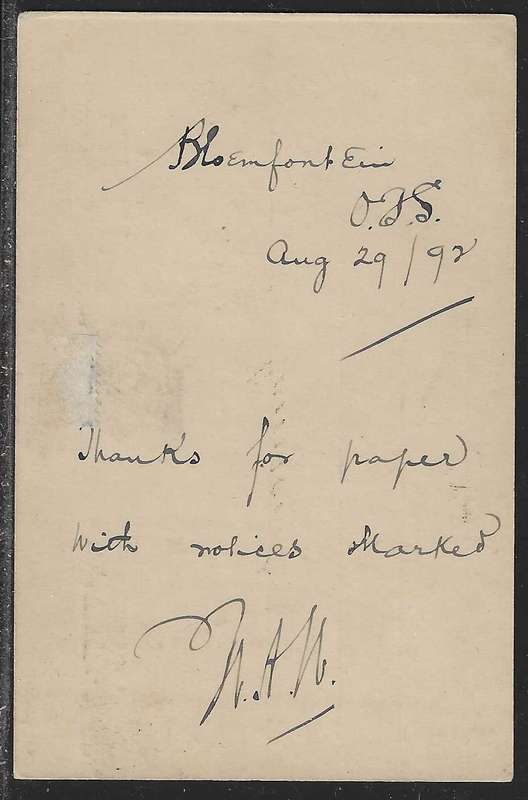 Bloemfontein
O.F.S.
Aug 29/92
Thanks for paper
with notices Marked